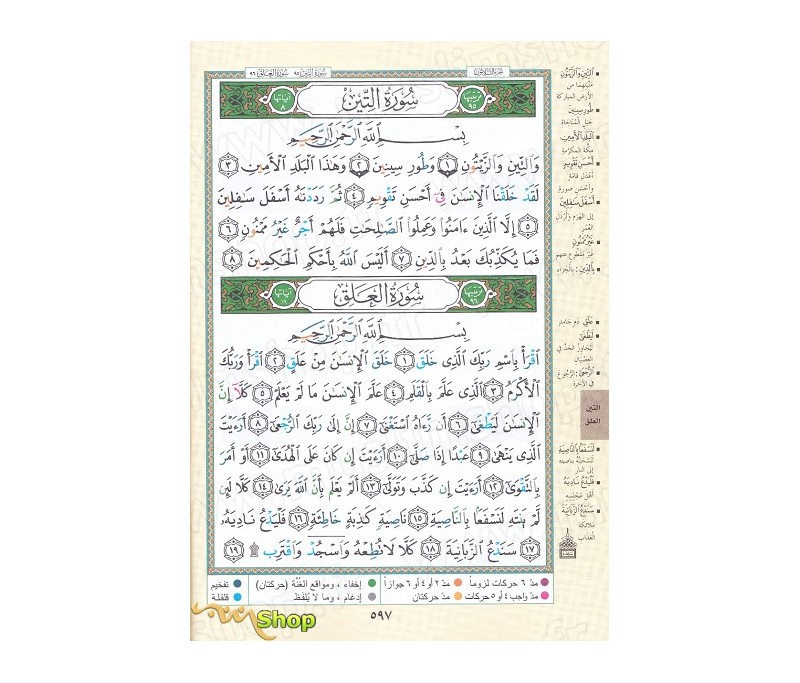 سورة التين ٩٥ سورة العلق ٩٦
ترتيبها ٩٥ سُورَةُ التِّينِ آياتها ٨
بِسْمِ اللَّهِ الرَّحْمَٰنِ الرَّحِيمِ
وَالتِّينِ وَالزَّيْتُونِ ١ وَطُورِ سِينِينَ ٢ وَهَٰذَا الْبَلَدِ الْأَمِينِ ٣
لَقَدْ خَلَقْنَا الْإِنسَٰنَ فِي أَحْسَنِ تَقْوِيمٍ ٤ ثُمَّ رَدَدْنَٰهُ أَسْفَلَ سَٰفِلِينَ
٥ إِلَّا الَّذِينَ ءَامَنُوا وَعَمِلُوا الصَّٰلِحَٰتِ فَلَهُمْ أَجْرٌ غَيْرُ مَمْنُونٍ ٦
فَمَا يُكَذِّبُكَ بَعْدُ بِالدِّينِ ٧ أَلَيْسَ اللَّهُ بِأَحْكَمِ الْحَٰكِمِينَ ٨
ترتيبها ٩٦ سُورَةُ الْعَلَقِ آياتها ١٩
بِسْمِ اللَّهِ الرَّحْمَٰنِ الرَّحِيمِ
اقْرَأْ بِاسْمِ رَبِّكَ الَّذِي خَلَقَ ١ خَلَقَ الْإِنسَٰنَ مِنْ عَلَقٍ ٢ اقْرَأْ وَرَبُّكَ
الْأَكْرَمُ ٣ الَّذِي عَلَّمَ بِالْقَلَمِ ٤ عَلَّمَ الْإِنسَٰنَ مَا لَمْ يَعْلَمْ ٥ كَلَّآ إِنَّ
الْإِنسَٰنَ لَيَطْغَىٰٓ ٦ أَن رَّءَاهُ اسْتَغْنَىٰٓ ٧ إِنَّ إِلَىٰ رَبِّكَ الرُّجْعَىٰٓ ٨ أَرَءَيْتَ
الَّذِي يَنْهَىٰ ٩ عَبْدًا إِذَا صَلَّىٰٓ ١٠ أَرَءَيْتَ إِن كَانَ عَلَى الْهُدَىٰٓ ١١ أَوْ أَمَرَ
بِالتَّقْوَىٰٓ ١٢ أَرَءَيْتَ إِن كَذَّبَ وَتَوَلَّىٰٓ ١٣ أَلَمْ يَعْلَم بِأَنَّ اللَّهَ يَرَىٰ ١٤ كَلَّا لَئِن
لَّمْ يَنتَهِ لَنَسْفَعًا بِالنَّاصِيَةِ ١٥ نَاصِيَةٍ كَٰذِبَةٍ خَاطِئَةٍ ١٦ فَلْيَدْعُ نَادِيَهُ
١٧ سَنَدْعُ الزَّبَانِيَةَ ١٨ كَلَّا لَا تُطِعْهُ وَاسْجُدْ وَاقْتَرِب ۩ ١٩
التِّينِ وَالزَّيْتُونِ
مَنْبِتِهِما من
الأرض المباركة
طُورِ سِينِينَ
جَبَلِ الْمُنَاجَاةِ
الْبَلَدِ الْأَمِينِ
مكّة المكرّمة
أَحْسَنِ تَقْوِيمٍ
أعْدَلِ قامَةٍ
وأحْسَنِ صورةٍ
أَسْفَلَ سَٰفِلِينَ
إلى الهَرَمِ وأَرْذَلِ
العُمُر
غَيْرُ مَمْنُونٍ
غيرُ مقطوعٍ عنهم
بِالدِّينِ: بالجزاء
عَلَقٍ: دَمٍ جامدٍ
لَيَطْغَىٰ
لَيُجاوِزُ الحدَّ في
العِصْيان
الرُّجْعَىٰ: الرُّجُوعَ
في الآخرة
التين
العلق
لَنَسْفَعًا بِالنَّاصِيَةِ
لنَسْحَبَنَّهُ بناصيته
إلى النار
فَلْيَدْعُ نَادِيَهُ
أهْلَ مَجْلِسِهِ
سَنَدْعُ الزَّبَانِيَةَ
ملائكةَ
العذاب
مدّ ٦ حركات لزوماً مدّ ٢ أو ٤ أو ٦ جوازاً إخفاء ، ومواقع الغُنَّة (حركتان) تفخيم
مدّ واجب ٤ أو ٥ حركات مدّ حركتان إدغام ، وما لا يُلفَظ قلقلة
٥٩٧
Shop